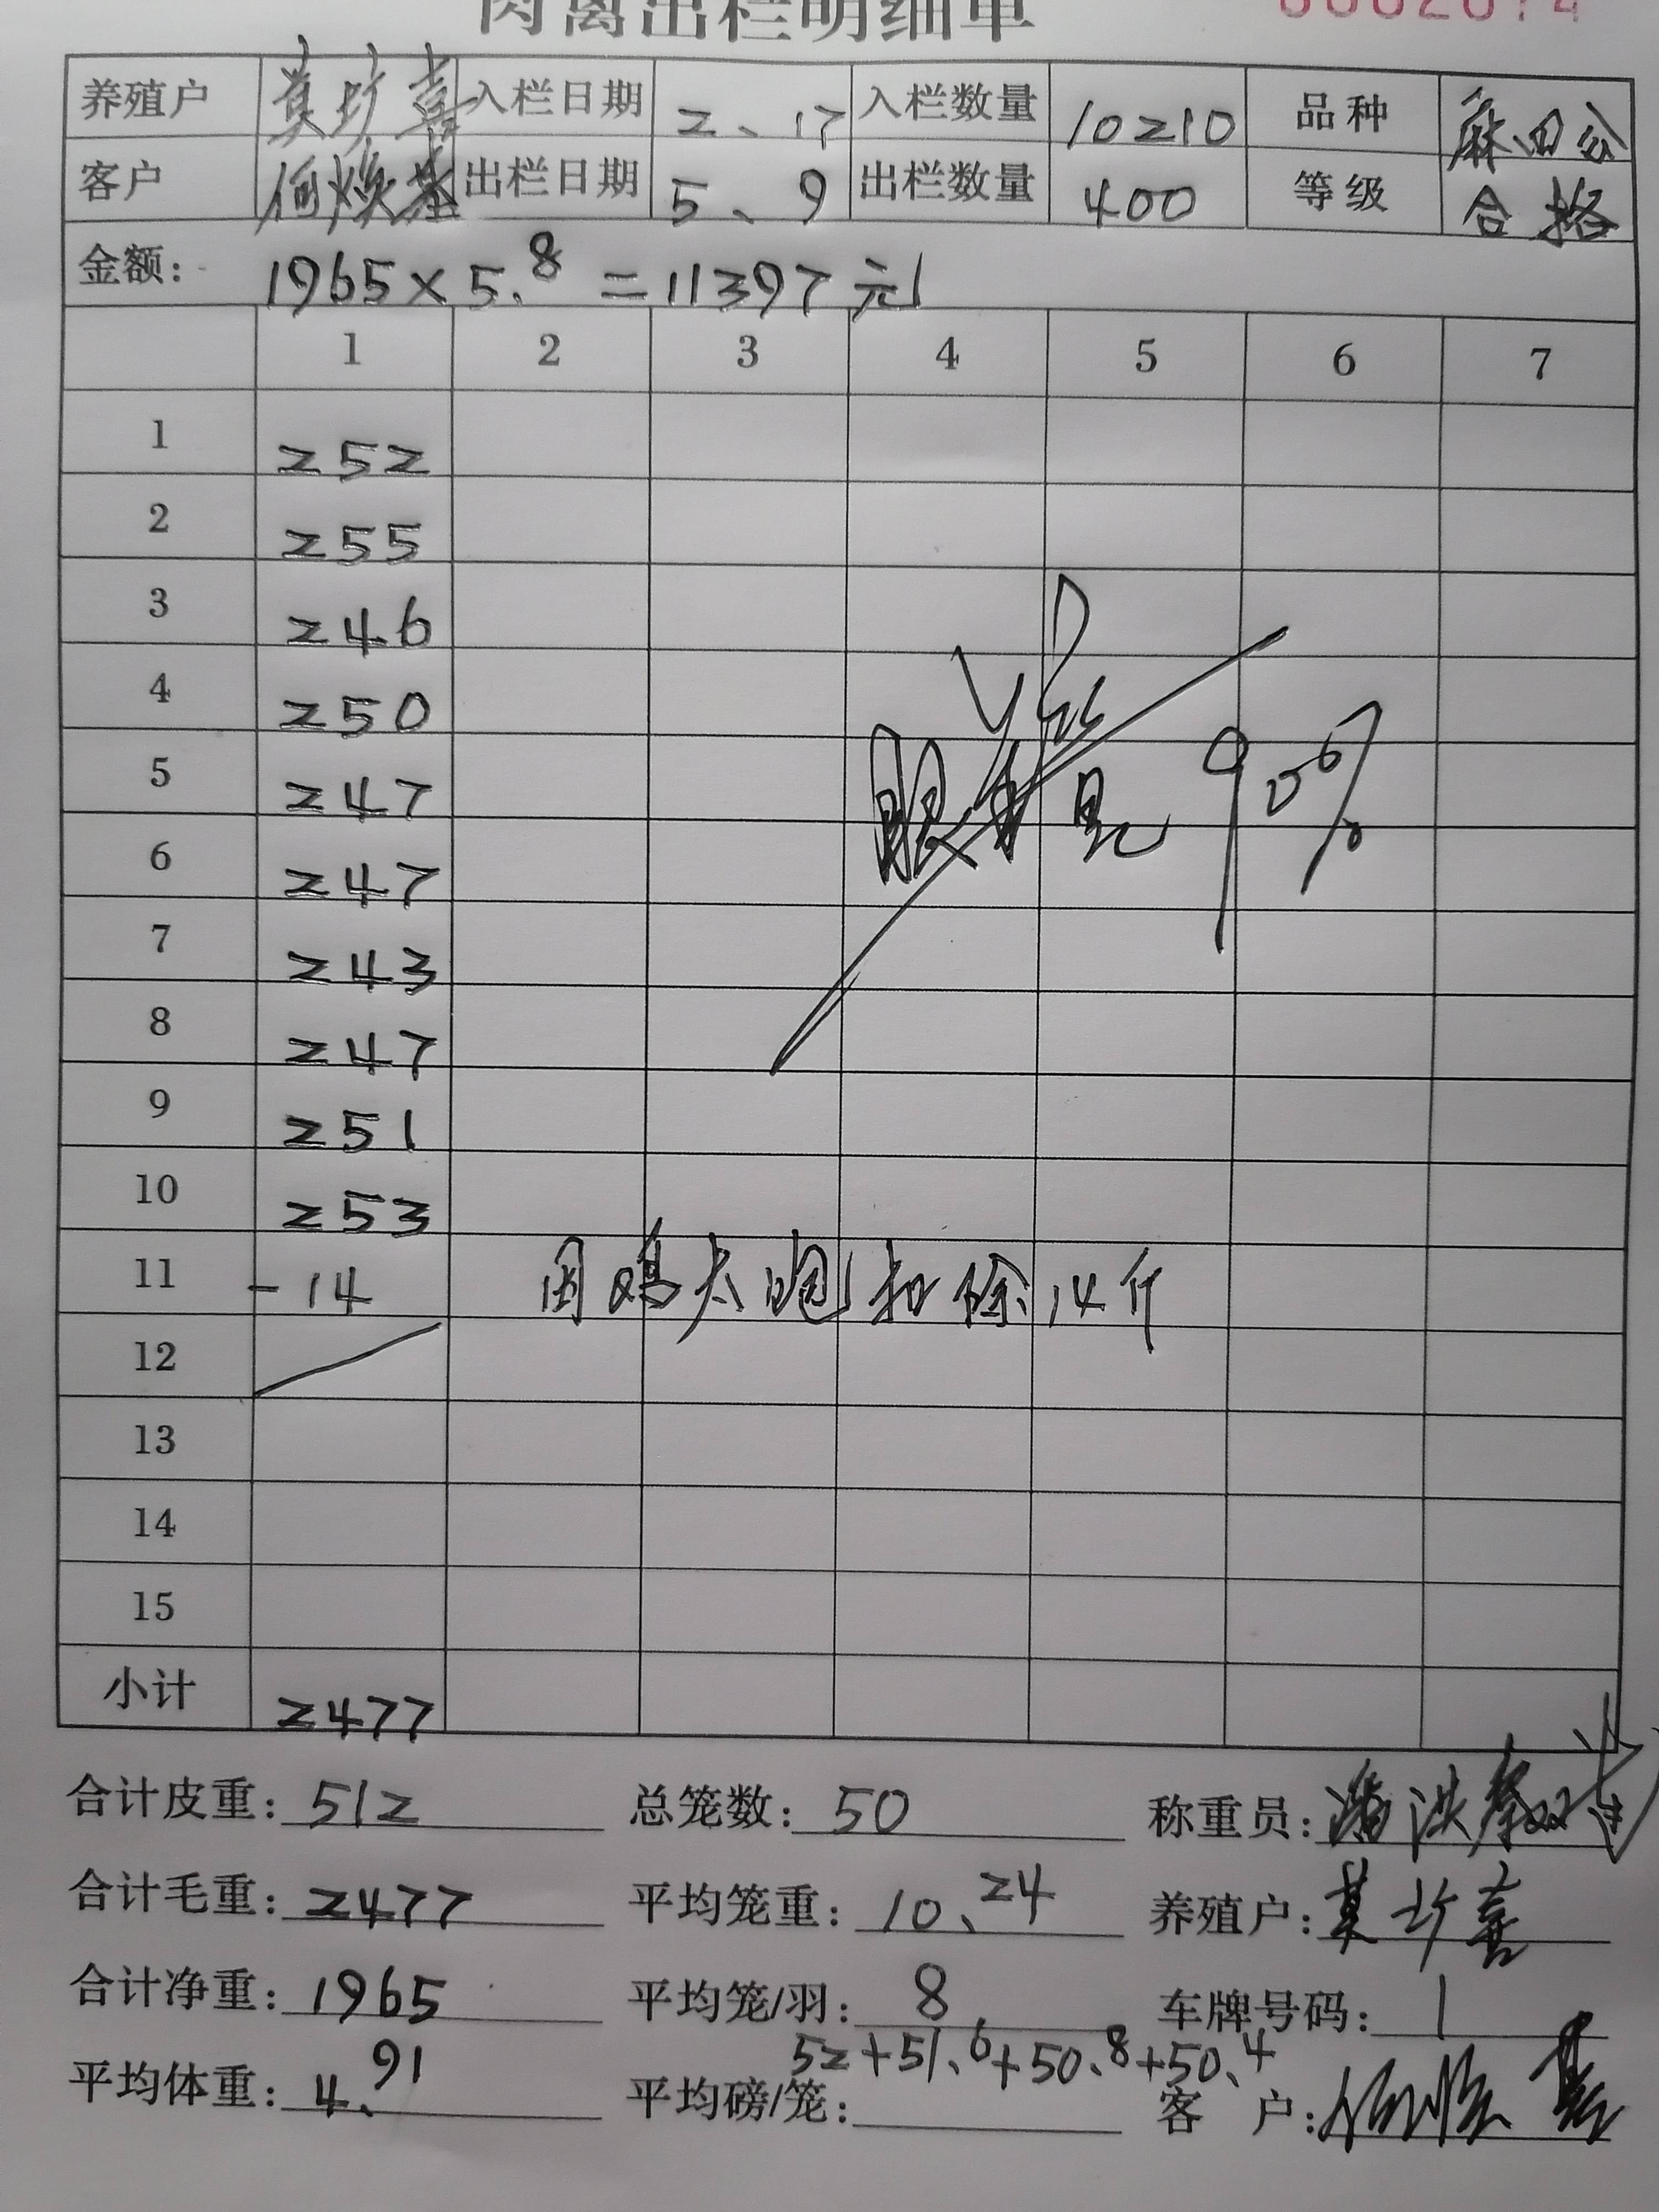 肉禽出栏明细单
养殖户 莫珍喜 入栏日期 2、17 入栏数量 10210 品种 麻四公
客户 何焕基 出栏日期 5、9 出栏数量 400 等级 合格
金额: 1965×5.8=11397元
1 2 3 4 5 6 7
1 252
2 255
3 246
4 250
5 247
6 247
7 243
8 247
9 251
10 253
11 -14 因鸡太饱扣除14斤
12
13
14
15
小计 2477
90%
合计皮重: 512 总笼数: 50 称重员: 潘洪
合计毛重: 2477 平均笼重: 10、24 养殖户: 莫珍喜
合计净重: 1965 平均笼/羽: 8 车牌号码: 1
52+51、6+50、8+50、4
平均体重: 4、91 平均磅/笼: 客 户: 何焕基